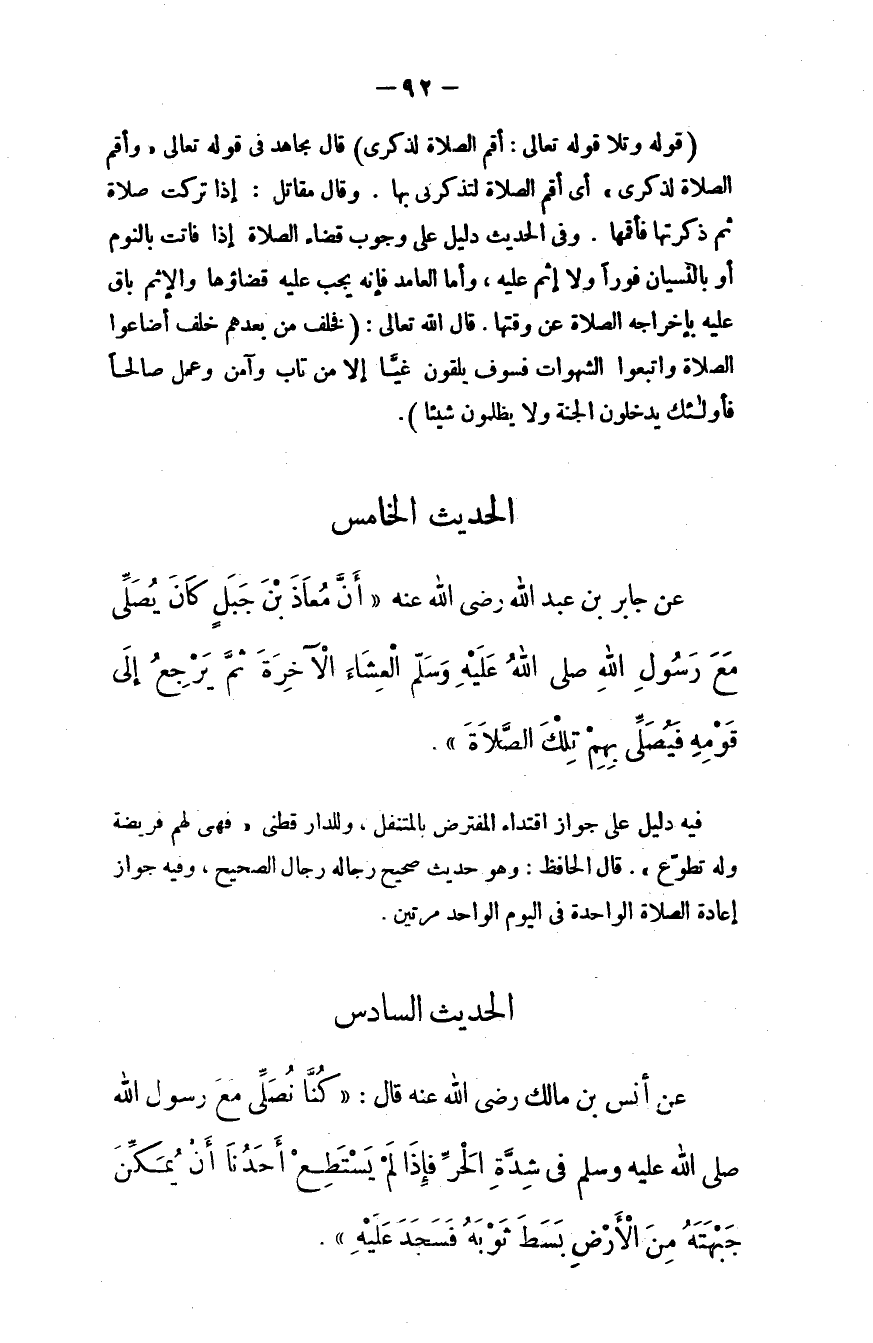 — ٩٢ —
(قوله وتلا قوله تعالى : أقم الصلاة لذكرى) قال مجاهد فى قوله تعالى « وأقم
الصلاة لذكرى » أى أقم الصلاة لتذكرنى بها . وقال مقاتل : إذا تركت صلاة
ثم ذكرتها فأقمها . وفى الحديث دليل على وجوب قضاء الصلاة إذا فاتت بالنوم
أو بالنّسيان فوراً ولا إثم عليه ، وأما العامد فإنه يجب عليه قضاؤها والإثم باق
عليه بإخراجه الصلاة عن وقتها . قال الله تعالى : ( فخلف من بعدهم خلف أضاعوا
الصلاة واتبعوا الشهوات فسوف يلقون غيًّا إلا من تاب وآمن وعمل صالحاً
فأولئك يدخلون الجنة ولا يظلمون شيئا ) .
الحديث الخامس
عن جابر بن عبد الله رضى الله عنه « أَنَّ مُعَاذَ بْنَ جَبَلٍ كَانَ يُصَلِّى
مَعَ رَسُولِ اللهِ صلى اللهُ عَلَيْهِ وَسَلّم الْعِشَاءَ الْآخِرَةَ ثُمَّ يَرْجِعُ إلَى
قَوْمِهِ فَيُصَلِّى بِهِمْ تِلْكَ الصَّلاَةَ » .
فيه دليل على جواز اقتداء المفترض بالمتنفل ، وللدار قطنى « فهى لهم فريضة
وله تطوّع » . قال الحافظ : وهو حديث صحيح رجاله رجال الصحيح ، وفيه جواز
إعادة الصلاة الواحدة فى اليوم الواحد مرتين .
الحديث السادس
عن أنس بن مالك رضى الله عنه قال : « كُنَّا نُصَلِّى مَعَ رسول الله
صلى الله عليه وسلم فى شِدَّةِ الْحَرِّ فَإِذَا لَمْ يَسْتَطِعْ أَحَدُنَا أَنْ يُمَكِّنَ
جَبْهَتَهُ مِنَ الْأَرْضِ بَسَطَ ثَوْبَهُ فَسَجَدَ عَلَيْهِ » .